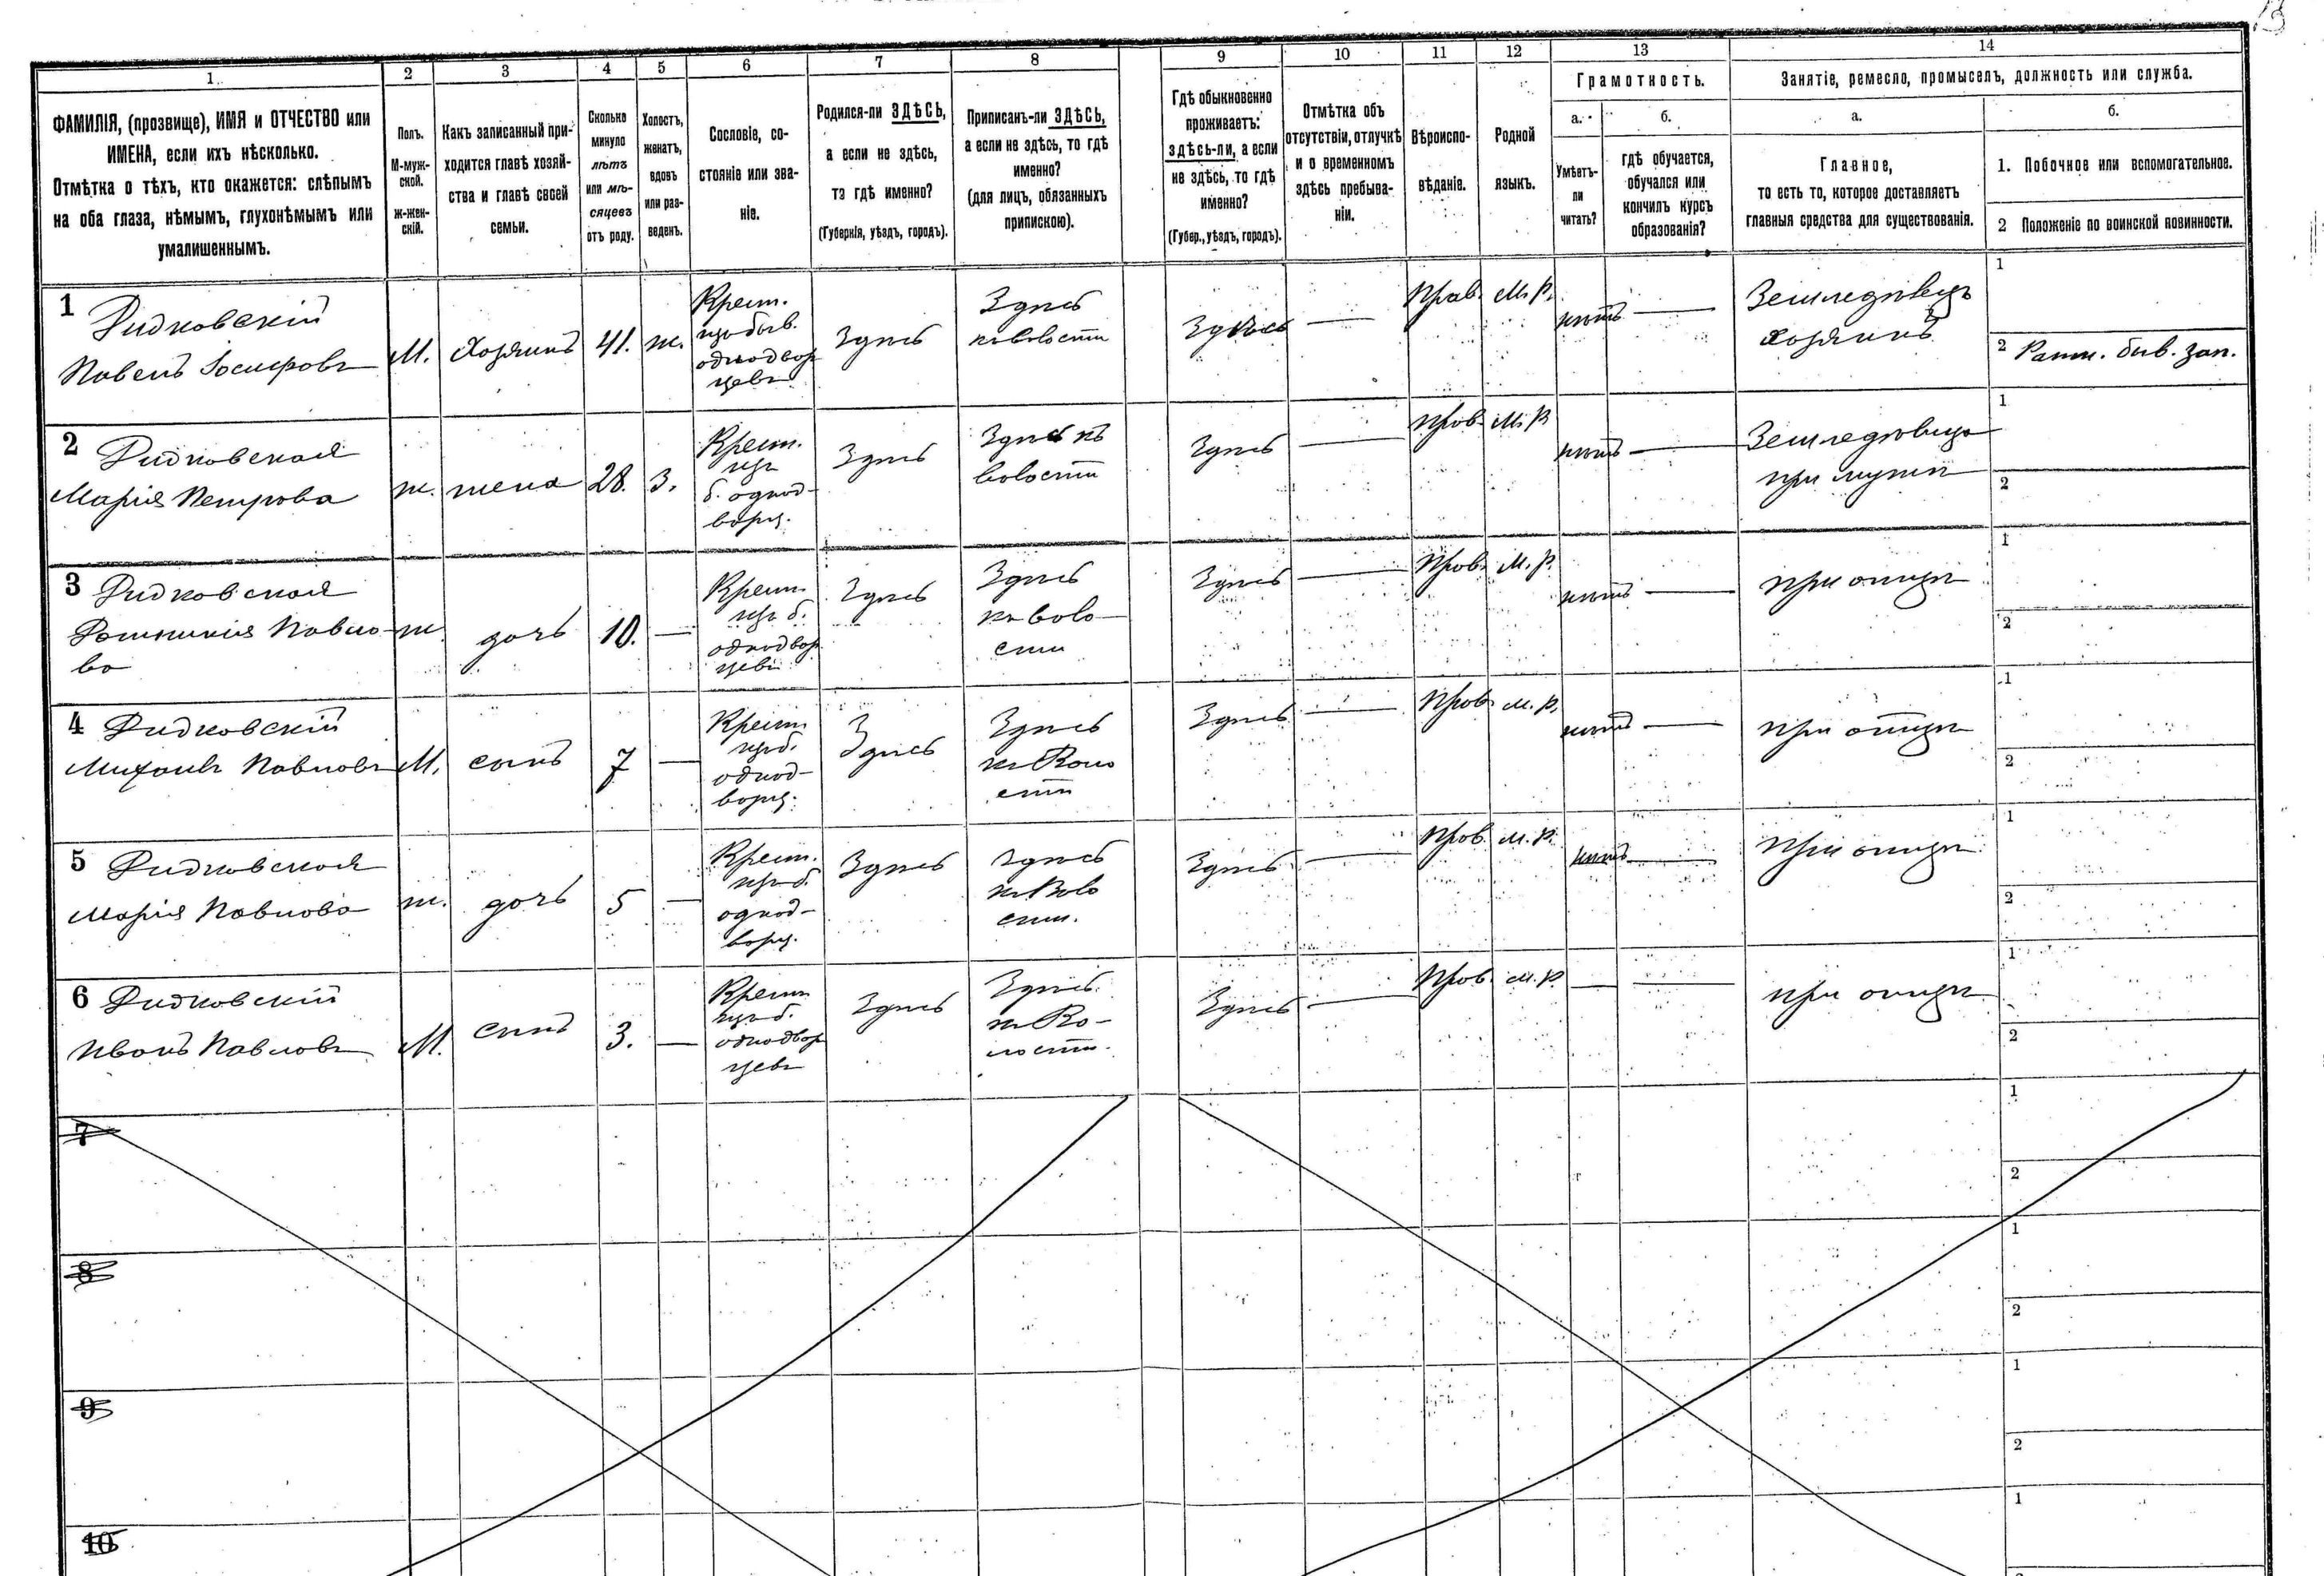 1.
2
3
4
5
6
7
8
9
10
11
12
13
14
ФАМИЛІЯ, (прозвище), ИМЯ и ОТЧЕСТВО или
ИМЕНА, если ихъ нѣсколько.
Отмѣтка о тѣхъ, кто окажется: слѣпымъ
на оба глаза, нѣмымъ, глухонѣмымъ или
умалишеннымъ.
Полъ.
М-муж-
ской.
Ж-жен-
скій.
Какъ записанный при-
ходится главѣ хозяй-
ства и главѣ своей
семьи.
Сколько
минуло
лѣтъ
или мѣ-
сяцевъ
отъ роду.
Холостъ,
женатъ,
вдовъ
или раз-
веденъ.
Сословіе, со-
стояніе или зва-
ніе.
Родился-ли ЗДѢСЬ,
а если не здѣсь,
то гдѣ именно?
(Губернія, уѣздъ, городъ).
Приписанъ-ли ЗДѢСЬ,
а если не здѣсь, то гдѣ
именно?
(для лицъ, обязанныхъ
припискою).
Гдѣ обыкновенно
проживаетъ:
здѣсь-ли, а если
не здѣсь, то гдѣ
именно?
(Губер., уѣздъ, городъ).
Отмѣтка объ
отсутствіи, отлучкѣ
и о временномъ
здѣсь пребыва-
ніи.
Вѣроиспо-
вѣданіе.
Родной
языкъ.
Грамотность.
а.
Умѣетъ-
ли
читать?
б.
гдѣ обучается,
обучался или
кончилъ курсъ
образованія?
Занятіе, ремесло, промыселъ, должность или служба.
а.
Главное,
то есть то, которое доставляетъ
главныя средства для существованія.
б.
1. Побочное или вспомогательное.
2 Положеніе по воинской повинности.
1 Дидковскій
Павелъ Іосифовъ
М.
Хозяинъ
41.
ж.
Крест.
изъ быв.
однодвор
цевъ
Здѣсь
Здѣсь
къ волости
Здѣсь
—
Прав.
М. Р.
нѣтъ
—
Земледѣлецъ
Хозяинъ
1
2 Ратн. быв. зап.
2 Дидковская
Марія Петрова
ж.
жена
28.
З.
Крест.
изъ
б. однод-
ворц.
Здѣсь
Здѣсь къ
волости
Здѣсь
—
Прав.
М. Р.
нѣтъ
—
Земледѣлица
при мужѣ
1
2
3 Дидковская
Павло-
ва
ж.
дочь
10.
—
Крест.
изъ б.
однодвор
цевъ
Здѣсь
Здѣсь
къ воло-
сти
Здѣсь
—
Прав.
М. Р.
нѣтъ
—
при отцѣ
1
2
4 Дидковскій
Михаилъ Павловъ
М.
сынъ
7
—
Крест.
изъ б.
однод-
ворц.
Здѣсь
Здѣсь
къ Воло
сти
Здѣсь
—
Прав.
М. Р.
нѣтъ
—
при отцѣ
1
2
5 Дидковская
Марія Павлова
ж.
дочь
5
—
Крест.
изъ б.
однод-
ворц.
Здѣсь
Здѣсь
къ Воло
сти.
Здѣсь
—
Прав.
М. Р.
нѣтъ
—
при отцѣ
1
2
6 Дидковскій
Иванъ Павловъ
М.
сынъ
3.
—
Крест.
изъ б.
однодвор
цевъ
Здѣсь
Здѣсь
къ Во-
лости.
Здѣсь
—
Прав.
М. Р.
—
—
при отцѣ
1
2
7
1
2
8
1
2
9
1
2
10
1